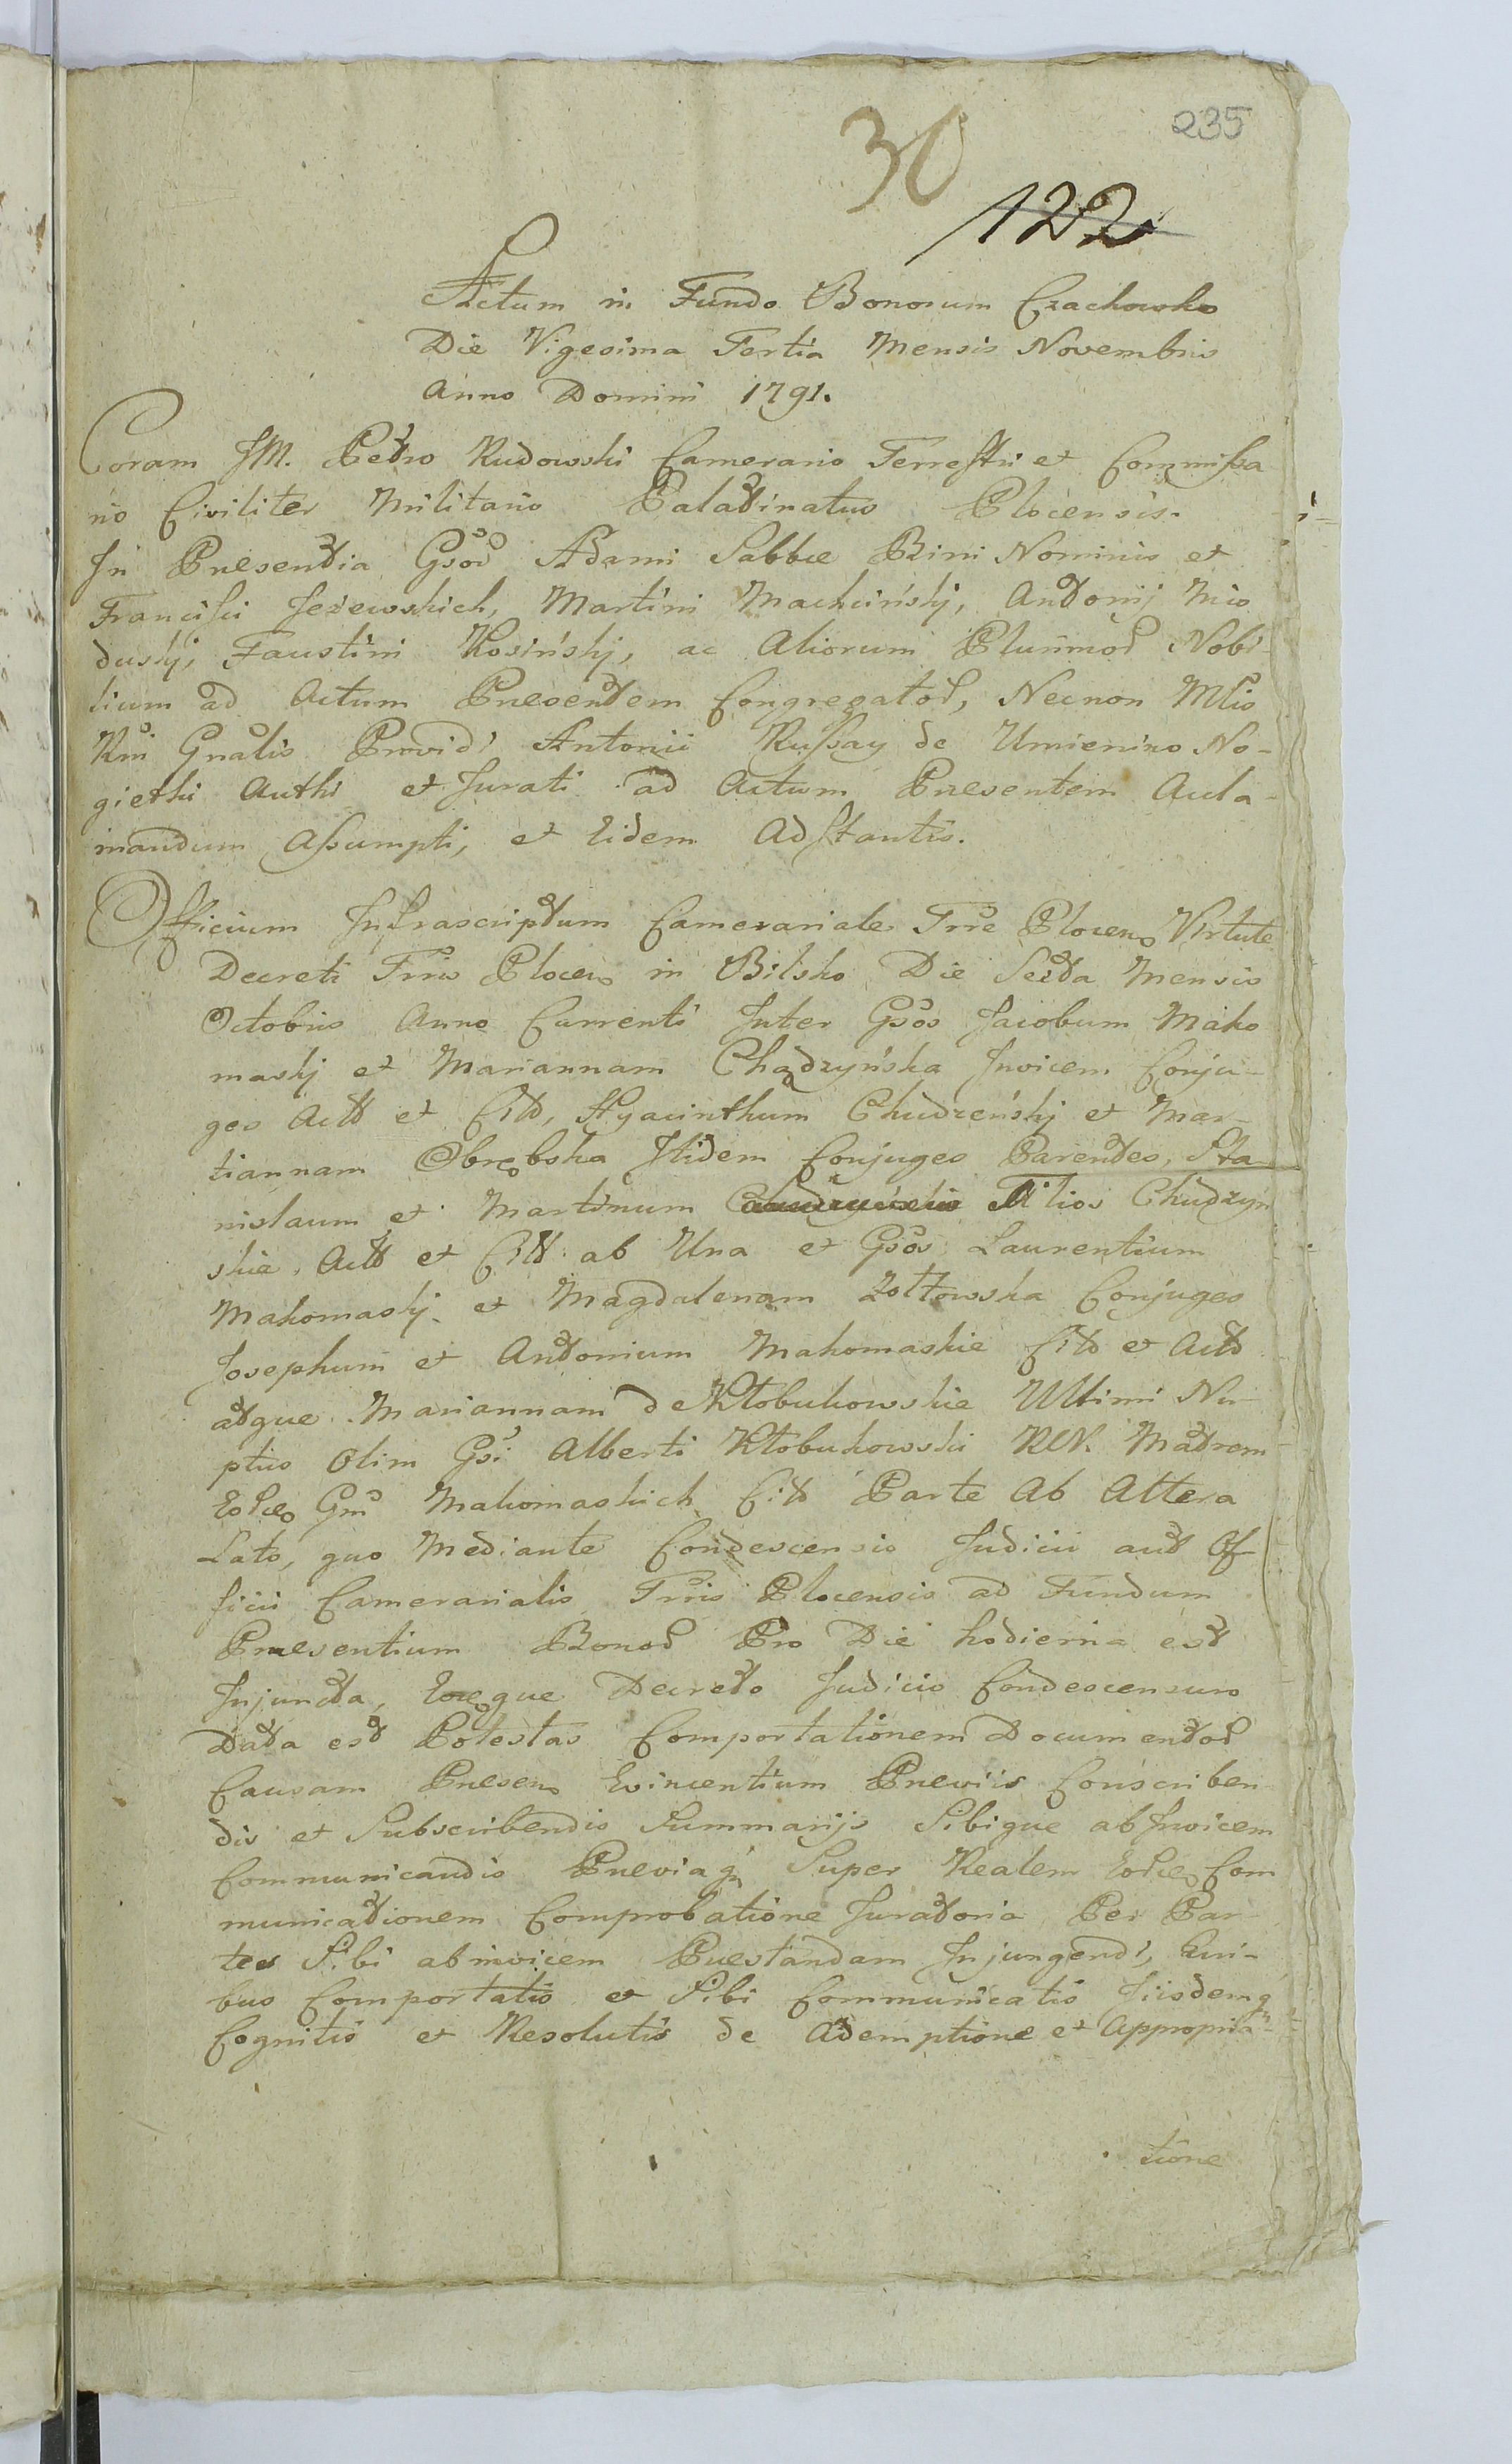 235
30
122
Actum in Fundo Bonorum Czachowsko
Die Vigesima Tertia Mensis Novembris
Anno Domini 1791.
Coram JM. Petro Rudowski Camerario Terrestri et Commissa
rio Civiliter Militario Palatinatus Plocensis.
In Presentia Gsor Adami Sabbæ Bini Nominis et
Francisci Jeżewskich, Martini Machcińskj, Antonij Mio
duskj, Faustini Kosińskj, ac Aliorum Plurimor Nobi-
lium ad Actum Presentem Congregator, Necnon Mlis
Rni Gnalis Providi Antonii Russay de Umienino No-
giethi Authi et Jurati ad Actum Presentem Acla-
mandum Assumpti, et Eidem Adstantis.
Officium Infrascriptum Camerariale Trre Plocen Virtute
Decreti Trris Plocen in Bilsko Die Sexta Mensis
Octobris Anno Currenti Inter Gsos Jacobum Mako
maskj et Mariannam Chądzyńska Invicem Conju-
ges Actt et Citt, Hyacinthum Chudzeńskj et Mar-
tiannam Obrębska Itidem Conjuges Parentes, Sta
nislaum et Martinum Filios Chudzyn
skie, Actt et Citt ab Una et Gsos Laurentium
Makomaskj et Magdalenam Zołtowska Conjuges
Josephum et Antonium Makomaskie Citt et Actt
atque Mariannam de Kłobukowskie Ultimi Nu-
ptus Olim Gsi Alberti Kłobukowski Rel. Matrem
Makomaskich Citt Parte Ab Altera
Lato, quo Mediante Condescensio Judicii aut Of
ficii Camerarialis Trris Plocensis ad Fundum
Praesentium Bonor Pro Die hodierna est
Injuncta, Eoque Decreto Judicio Condescensuro
Data est Potestas Comportationem Documentor
Causam Presen Evincentium Previis Conscriben
dis et Subscribendis Summarijs Sibique ab Invicem
Communicandis Previaq Super Realem Com
municationem Comprobatione Juratoria Per Par
tes Sibi ab invicem Prestandam Injungendi, Qui-
bus Comportatis et Sibi Communicatis Jiisdemq
Cognitis et Resolutis de Ademptione et Appropria-
tione